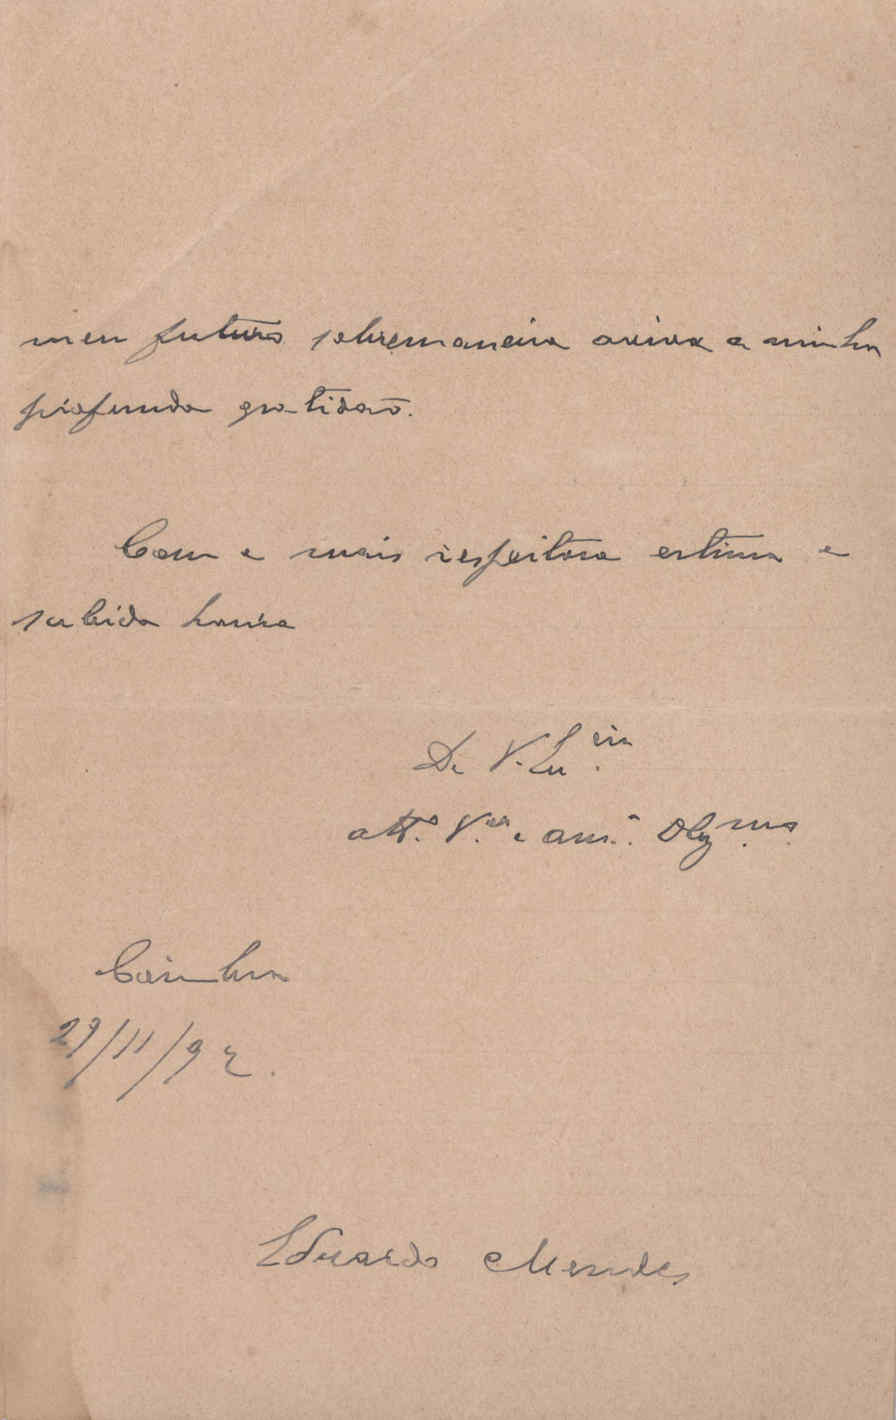 meu futuro sobremaneira aviva a minha
profunda gratidão.
Com a mais respeitosa estima e
subida honra
De V. Ex.cia
att.º V.or e am.º Obg.mo
Coimbra
29/11/92.
Eduardo Mendes